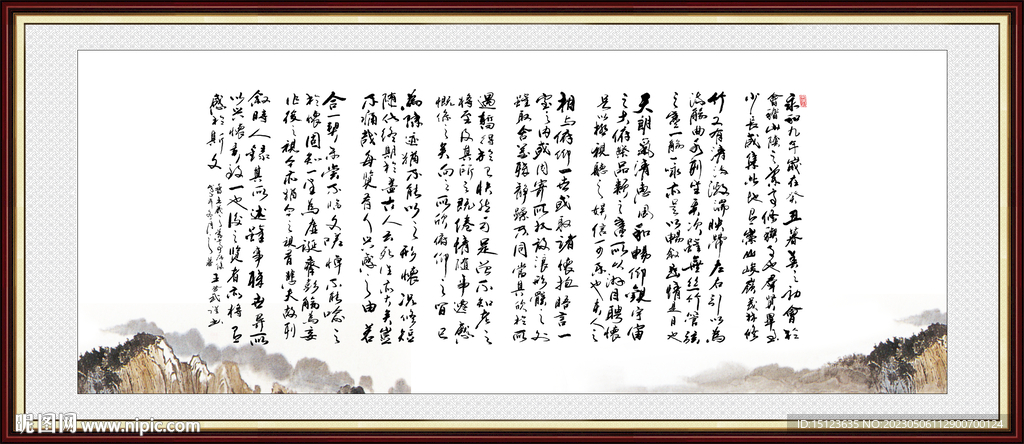 永和九年歲在癸丑暮春之初會於
會稽山陰之蘭亭修禊事也群賢畢至
少長咸集此地有崇山峻嶺茂林修
竹又有清流激湍映帶左右引以為
流觴曲水列坐其次雖無絲竹管弦
之盛一觴一詠亦足以暢敘幽情是日也
天朗氣清惠風和暢仰觀宇宙
之大俯察品類之盛所以游目騁懷
足以極視聽之娛信可樂也夫人之
相與俯仰一世或取諸懷抱晤言一
室之內或因寄所託放浪形骸之外
雖取舍萬殊靜躁不同當其欣於所
遇暫得於己快然自足曾不知老之
將至及其所之既倦情隨事遷感
慨係之矣向之所欣俯仰之間已
為陳迹猶不能以之興懷況修短
隨化終期於盡古人云死生亦大矣豈
不痛哉每覽昔人興感之由若
合一契未嘗不臨文嗟悼不能喻之
於懷固知一死生為虛誕齊彭殤為妄
作後之視今亦猶今之視昔悲夫故列
敘時人錄其所述雖事殊世異所
以興懷其致一也後之覽者亦將有
感於斯文
昵图网 www.nipic.com
ID:15123635 NO:20230506112900700124